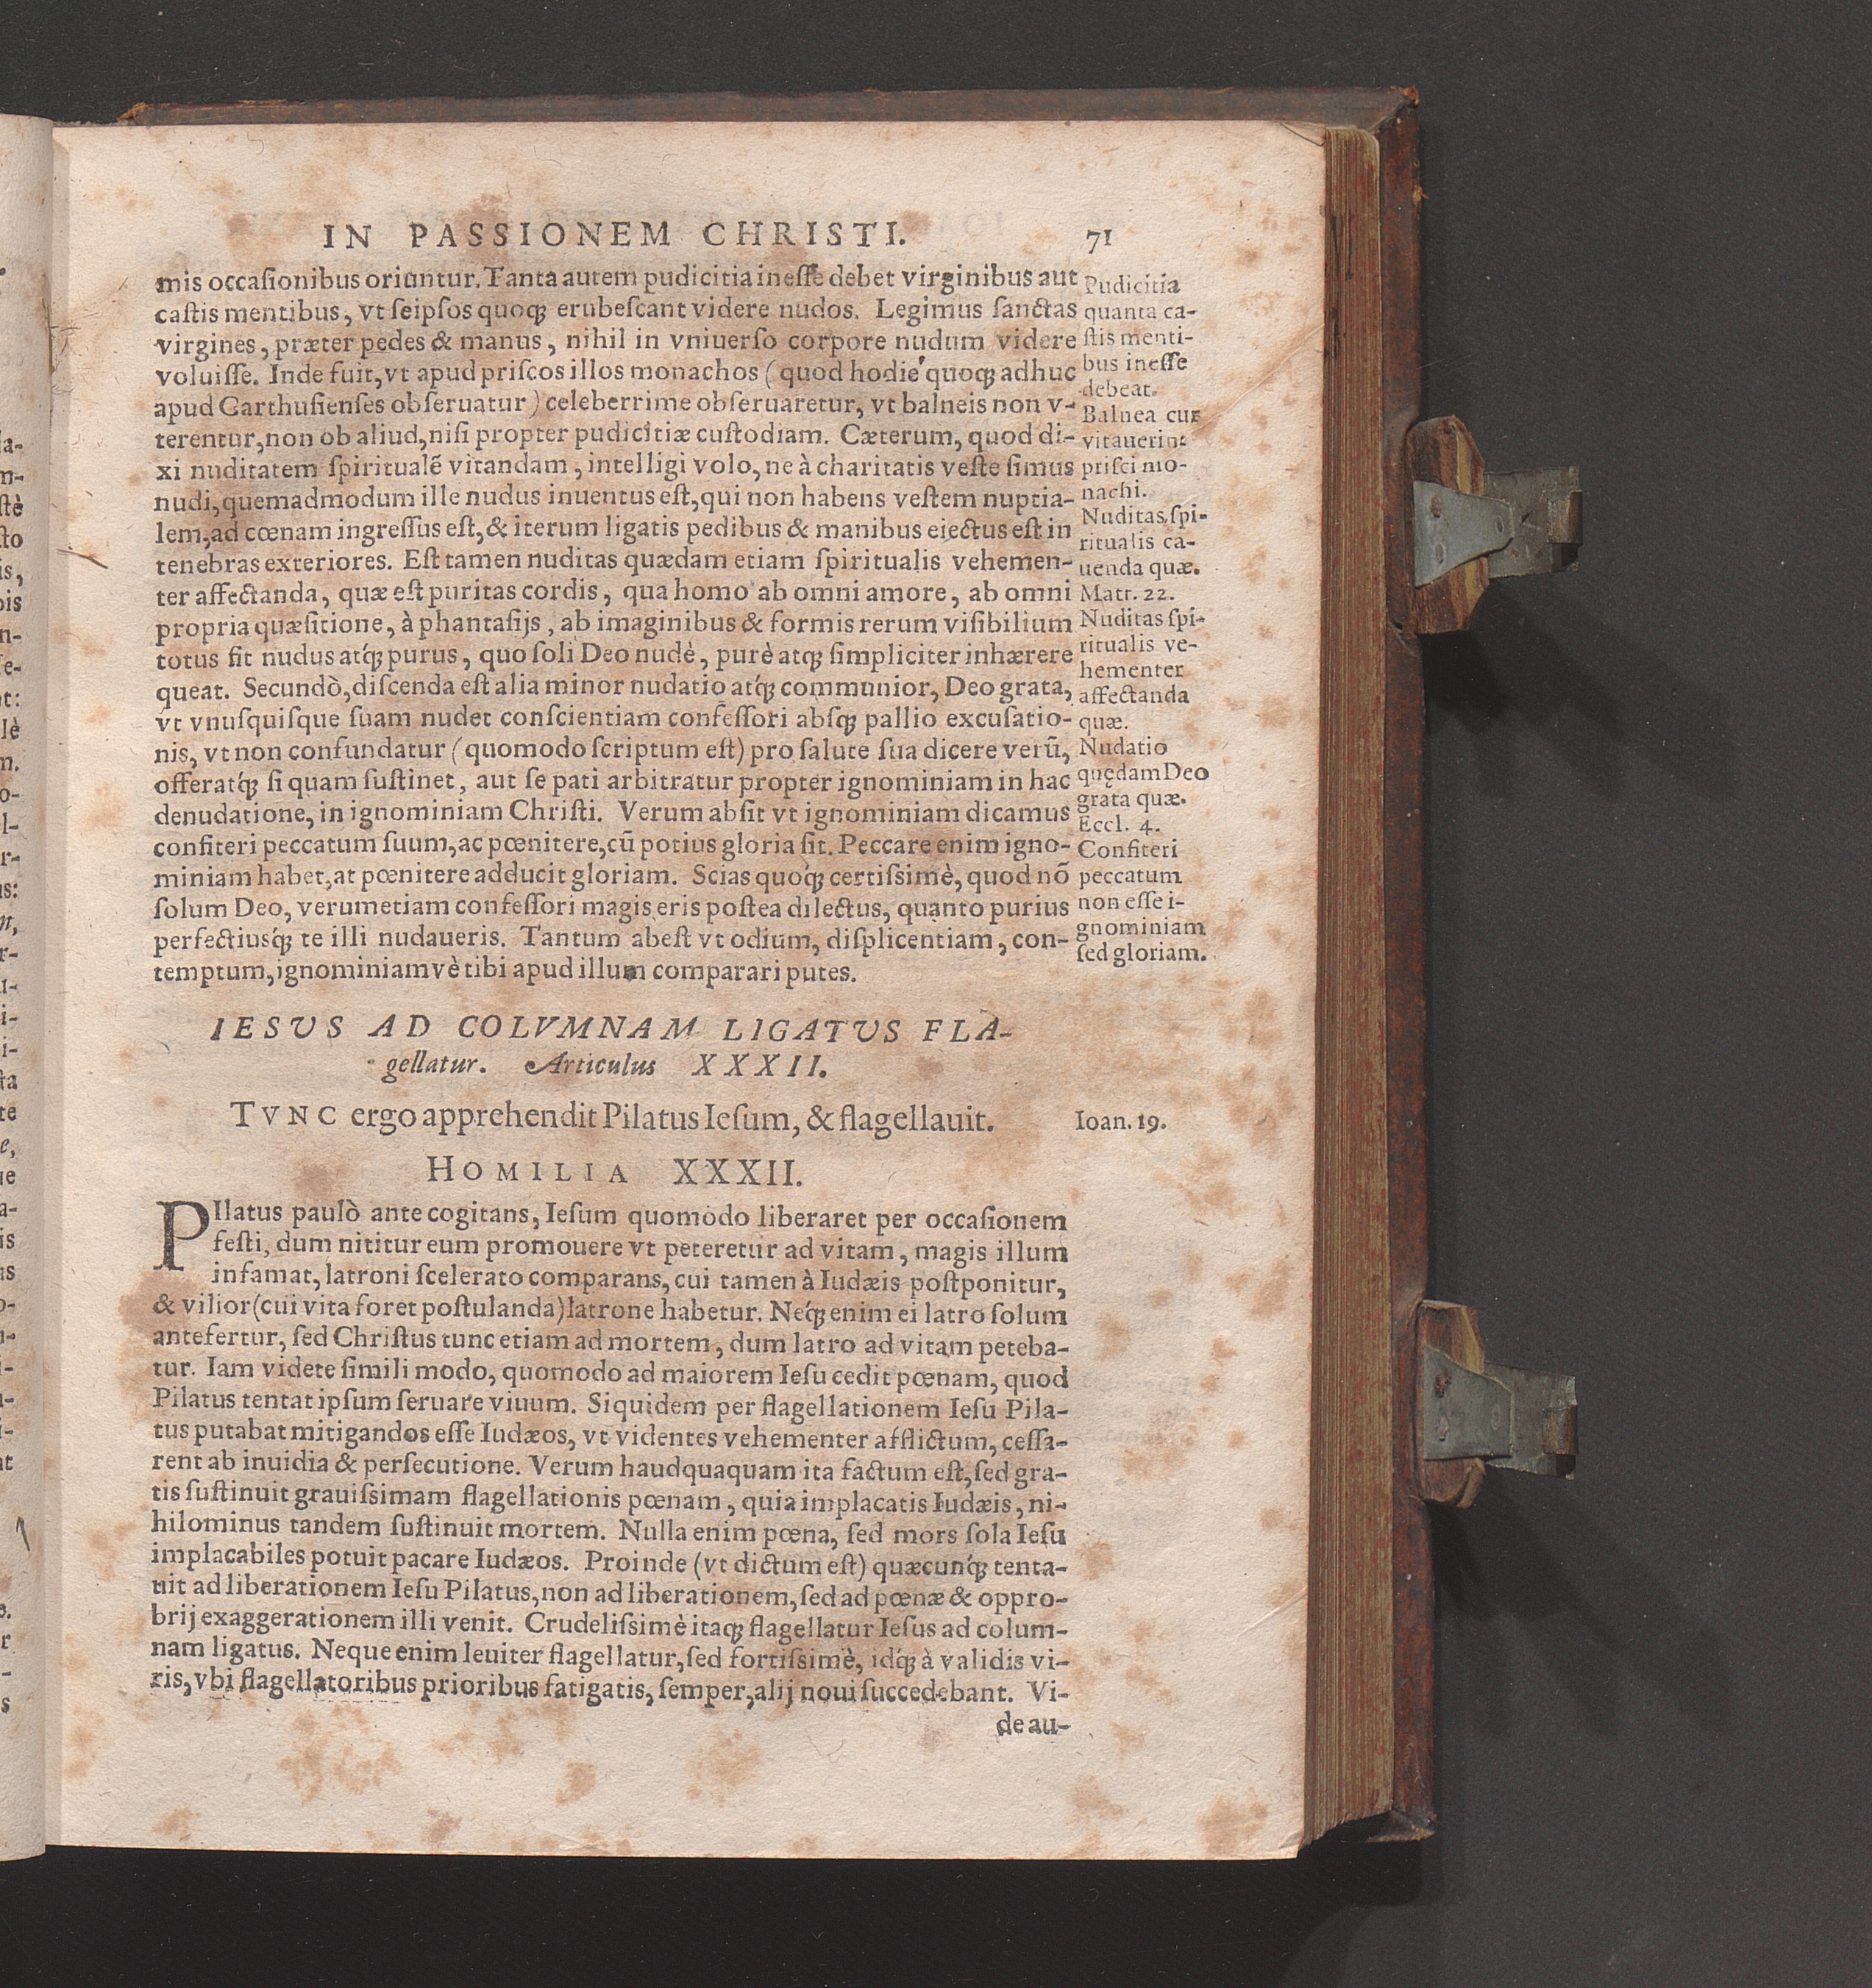 IN PASSIONEM CHRISTI. 71
mis occaſionibus oriuntur. Tanta autem pudicitia ineſſe debet virginibus aut
caſtis mentibus, vt ſeipſos quoq; erubeſcant videre nudos. Legimus ſanctas
virgines, præter pedes & manus, nihil in vniuerſo corpore nudum videre
voluiſſe. Inde fuit, vt apud priſcos illos monachos (quod hodie quoq; adhuc
apud Carthuſienſes obſeruatur) celeberrime obſeruaretur, vt balneis non v-
terentur, non ob aliud, niſi propter pudicitiæ cuſtodiam. Cæterum, quod di-
xi nuditatem ſpiritualẽ vitandam, intelligi volo, ne à charitatis veſte ſimus
nudi, quemadmodum ille nudus inuentus eſt, qui non habens veſtem nuptia-
lem, ad cœnam ingreſſus eſt, & iterum ligatis pedibus & manibus eiectus eſt in
tenebras exteriores. Eſt tamen nuditas quædam etiam ſpiritualis vehemen-
ter affectanda, quæ eſt puritas cordis, qua homo ab omni amore, ab omni
propria quæſitione, à phantaſijs, ab imaginibus & formis rerum viſibilium
totus fit nudus atq́; purus, quo ſoli Deo nudè, purè atq; ſimpliciter inhærere
queat. Secundò, diſcenda eſt alia minor nudatio atq́; communior, Deo grata,
vt vnuſquiſque ſuam nudet conſcientiam confeſſori abſq; pallio excuſatio-
nis, vt non confundatur (quomodo ſcriptum eſt) pro ſalute ſua dicere verũ,
offeratq́; ſi quam ſuſtinet, aut ſe pati arbitratur propter ignominiam in hac
denudatione, in ignominiam Chriſti. Verum abſit vt ignominiam dicamus
confiteri peccatum ſuum, ac pœnitere, cũ potius gloria ſit. Peccare enim igno-
miniam habet, at pœnitere adducit gloriam. Scias quoq́; certiſsimè, quod nõ
ſolum Deo, verumetiam confeſſori magis eris poſtea dilectus, quanto purius
perfectiusq́; te illi nudaueris. Tantum abeſt vt odium, diſplicentiam, con-
temptum, ignominiamvè tibi apud illum comparari putes.
Pudicitia
quanta ca-
ſtis menti-
bus ineſſe
debeat.
Balnea cur
vitauerint
priſci mo-
nachi.
Nuditas ſpi-
ritualis ca-
uenda quæ.
Matt. 22.
Nuditas ſpi-
ritualis ve-
hementer
affectanda
quæ.
Nudatio
quędam Deo
grata quæ.
Eccl. 4.
Confiteri
peccatum
non eſſe i-
gnominiam
ſed gloriam.
IESVS AD COLVMNAM LIGATVS FLA-
gellatur. Articulus XXXII.
TVNC ergo apprehendit Pilatus Ieſum, & flagellauit.
Ioan. 19.
HOMILIA XXXII.
PIlatus paulò ante cogitans, Ieſum quomodo liberaret per occaſionem
feſti, dum nititur eum promouere vt peteretur ad vitam, magis illum
infamat, latroni ſcelerato comparans, cui tamen à Iudæis poſtponitur,
& vilior (cui vita foret poſtulanda) latrone habetur. Neq́; enim ei latro ſolum
antefertur, ſed Chriſtus tunc etiam ad mortem, dum latro ad vitam peteba-
tur. Iam videte ſimili modo, quomodo ad maiorem Ieſu cedit pœnam, quod
Pilatus tentat ipſum ſeruare viuum. Siquidem per flagellationem Ieſu Pila-
tus putabat mitigandos eſſe Iudæos, vt videntes vehementer afflictum, ceſſa-
rent ab inuidia & perſecutione. Verum haudquaquam ita factum eſt, ſed gra-
tis ſuſtinuit grauiſsimam flagellationis pœnam, quia implacatis Iudæis, ni-
hilominus tandem ſuſtinuit mortem. Nulla enim pœna, ſed mors ſola Ieſu
implacabiles potuit pacare Iudæos. Proinde (vt dictum eſt) quæcunq́; tenta-
uit ad liberationem Ieſu Pilatus, non ad liberationem, ſed ad pœnæ & oppro-
brij exaggerationem illi venit. Crudeliſsimè itaq; flagellatur Ieſus ad colum-
nam ligatus. Neque enim leuiter flagellatur, ſed fortiſsimè, idq́; à validis vi-
ris, vbi flagellatoribus prioribus fatigatis, ſemper, alij noui ſuccedebant. Vi-
de au-